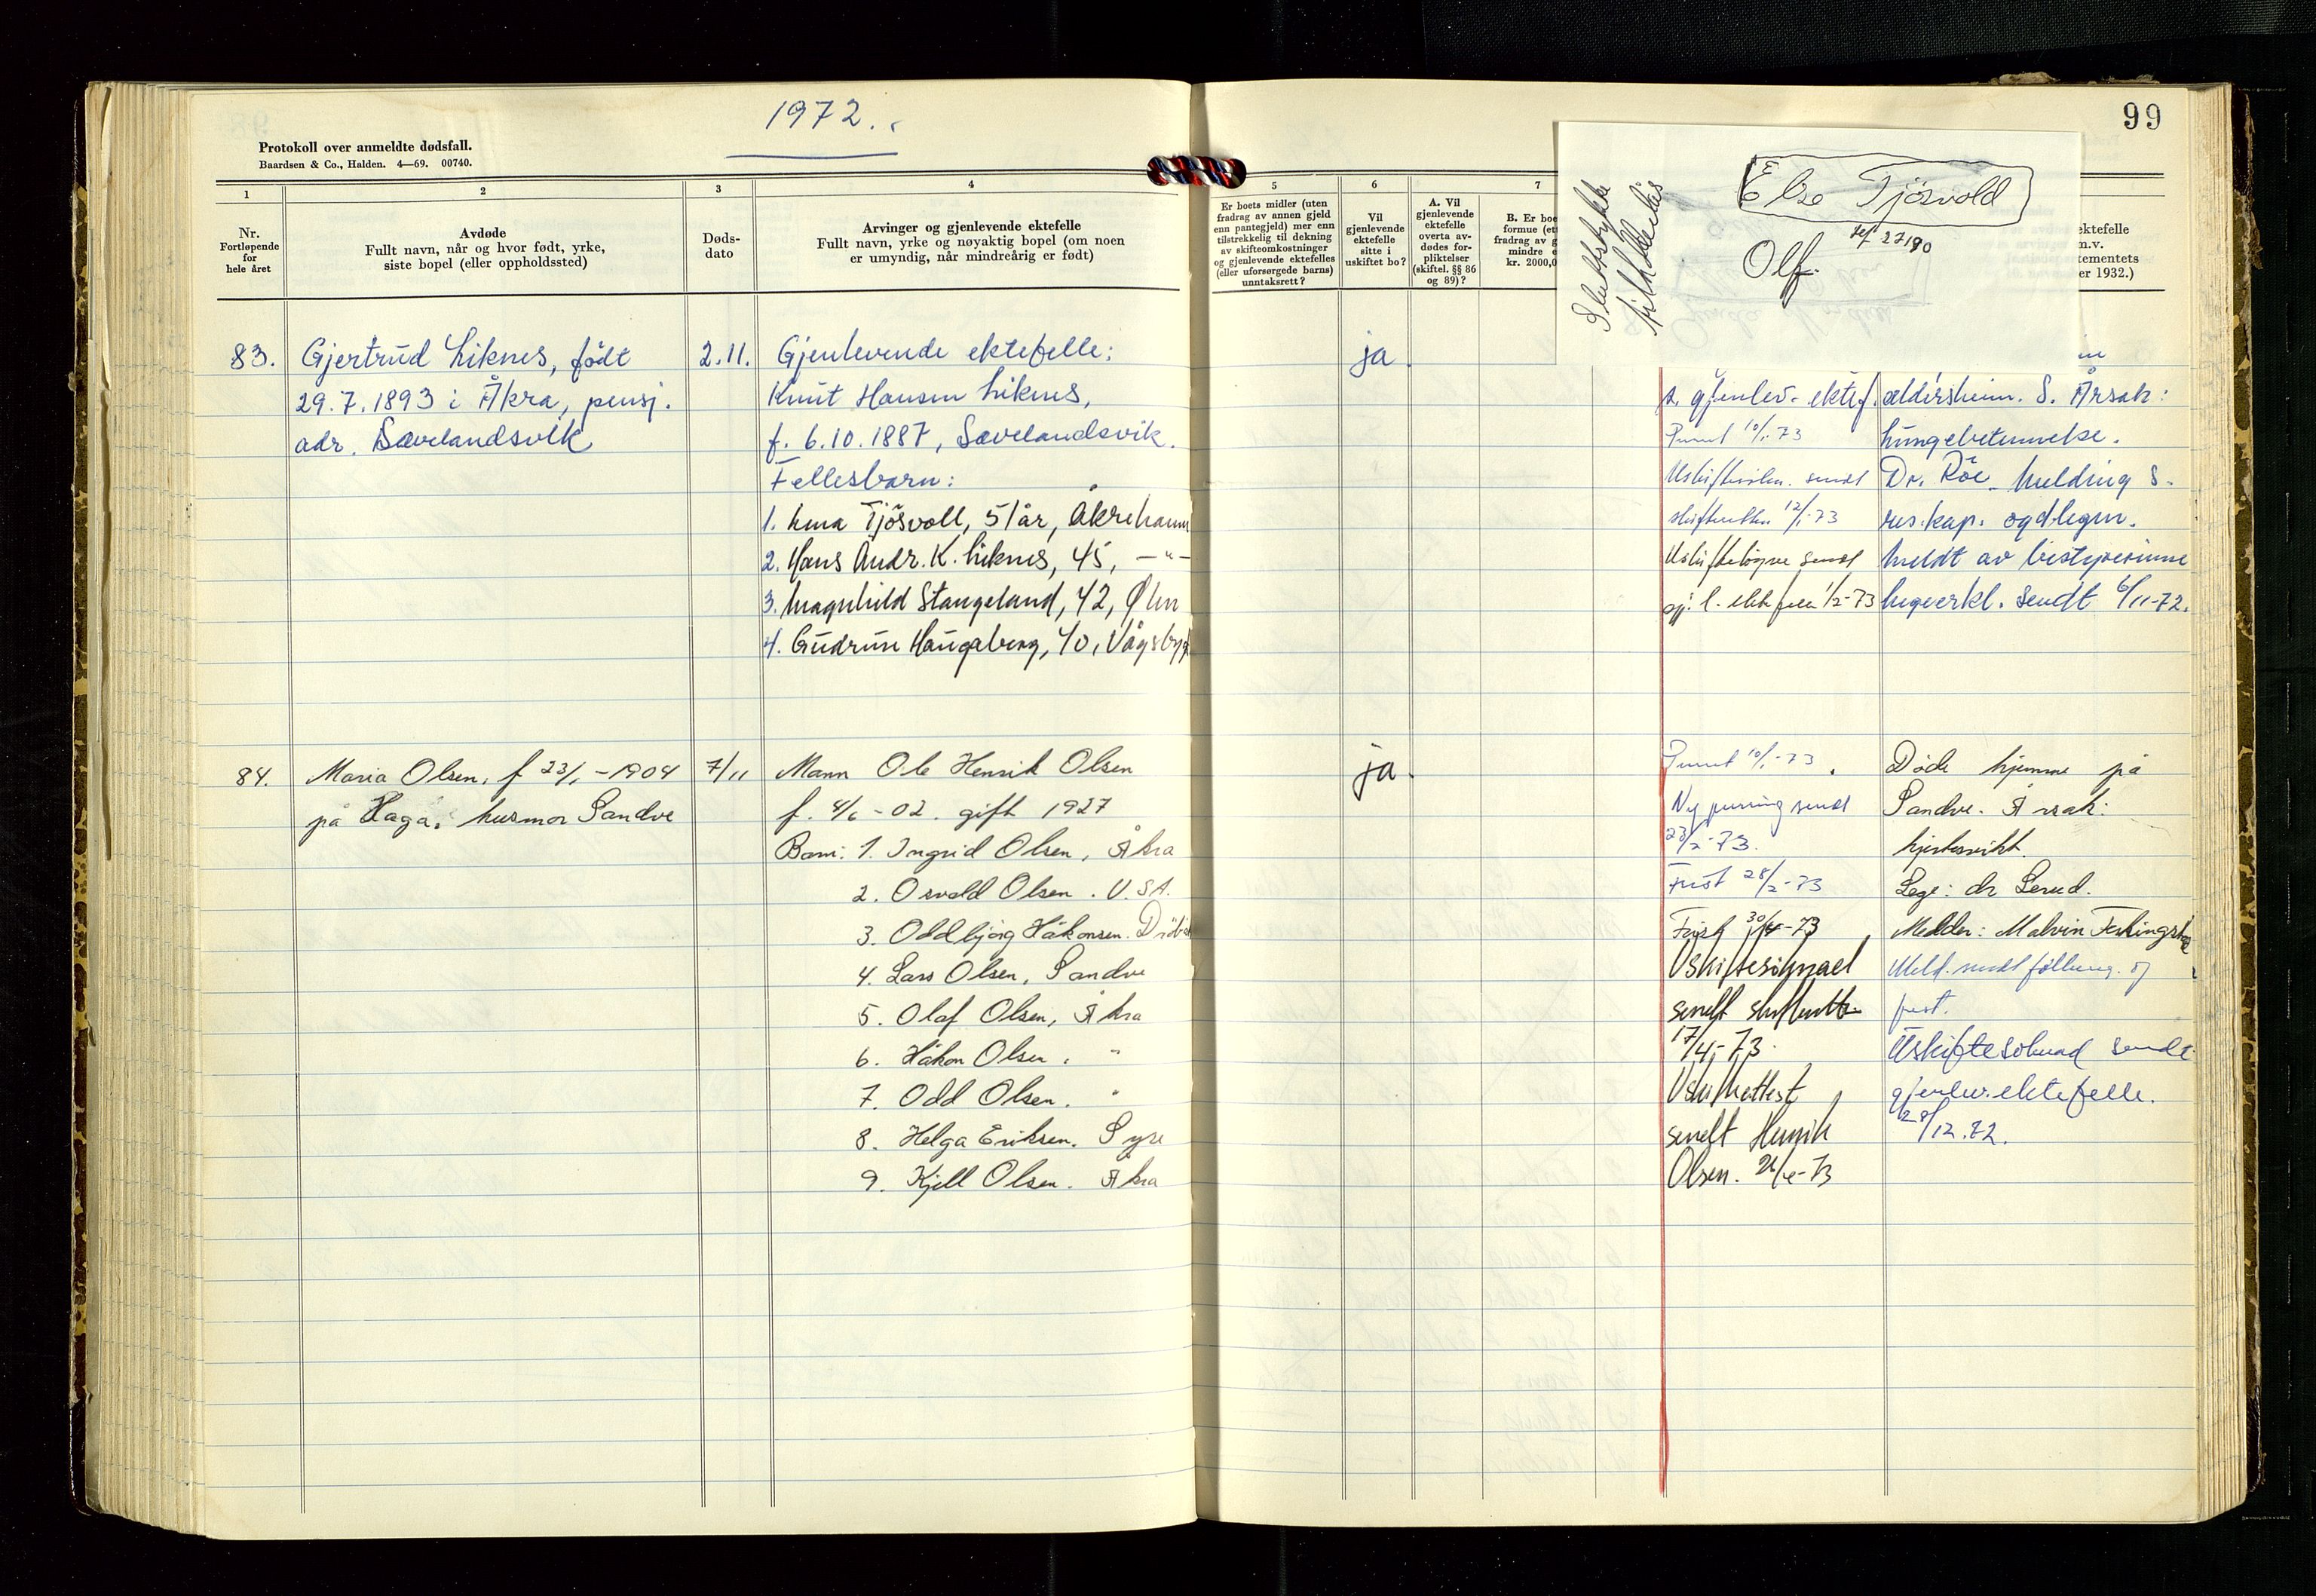 1972.
99
Protokoll over anmeldte dødsfall.
Baardsen & Co., Halden. 4—69. 00740.
1
2
3
4
5
6
7
Nr.
Fortløpende
for
hele året
Avdøde
Fullt navn, når og hvor født, yrke,
siste bopel (eller oppholdssted)
Døds-
dato
Arvinger og gjenlevende ektefelle
Fullt navn, yrke og nøyaktig bopel (om noen
er umyndig, når mindreårig er født)
Er boets midler (uten
fradrag av annen gjeld
enn pantegjeld) mer enn
tilstrekkelig til dekning
av skifteomkostninger
og gjenlevende ektefelles
(eller uforsørgede barns)
unntaksrett?
Vil
gjenlevende
ektefelle
sitte i
uskiftet bo?
A. Vil
gjenlevende
ektefelle
overta av-
dødes for-
pliktelser
(skiftel. §§ 86
og 89)?
B. Er boe
formue (et
fradrag av g
mindre e
kr. 2000,0
Else Tjösvold
tlf 27190
Olf.
ektefelle
m.v.
tementets
er 1932.)
83.
Gjertrud Liknes, født
29.7.1893 i Åkra, pensj.
adr. Sævelandsvik
2.11.
Gjenlevende ektefelle:
Knut Hansen Liknes,
f. 6.10.1887, Sævelandsvik.
Fellesbarn:
1. Lina Tjösvoll, 51 år, Åkrehamn
2. Hans Andr. K. Liknes, 45, —"—
3. Magnhild Stangeland, 42, Ølen
4. Gudrun Haugaberg, 40, Vågsbygd
ja.
s. gjenlev. ektef.
Purret 10/1-73
sendt
skifteretten 12/1-73
sendt
gj. l. ektefelle 1/2-73
aldersheim. D. Årsak:
lungebetennelse.
Dr. Röe. Melding s.
res.kap. og
meldt av bestyrerinne
legeerkl. sendt 6/11-72.
84.
Maria Olsen, f 23/1-1904
på Haga, husmor Sandve
7/11
Mann Ole Henrik Olsen
f. 4/6-02. gift 1927
Barn: 1. Ingrid Olsen, Åkra
2. Osvald Olsen. U.S.A.
3. Oddbjørg Håkonsen. Dröbak
4. Lars Olsen, Sandve
5. Olaf Olsen, Åkra
6. Håkon Olsen, "
7. Odd Olsen. "
8. Helga Eriksen. Syre
9. Kjell Olsen. Åkra
ja.
Purret 10/1-73.
Ny purring sendt
23/2-73.
Frist 28/2-73
Frist 30/4-73
Uskiftesöknael
sendt skifterett
17/4-73.
Uskifteattest
sendt Henrik
Olsen. 26/4-73
Döde hjemme på
Sandve. Årsak:
hjertesvikt.
Lege: dr Lerud.
Melder: Malvin
Meld. sendt
prest.
Uskiftesøknad sendt
gjenlev. ektefelle.
28/12.72.